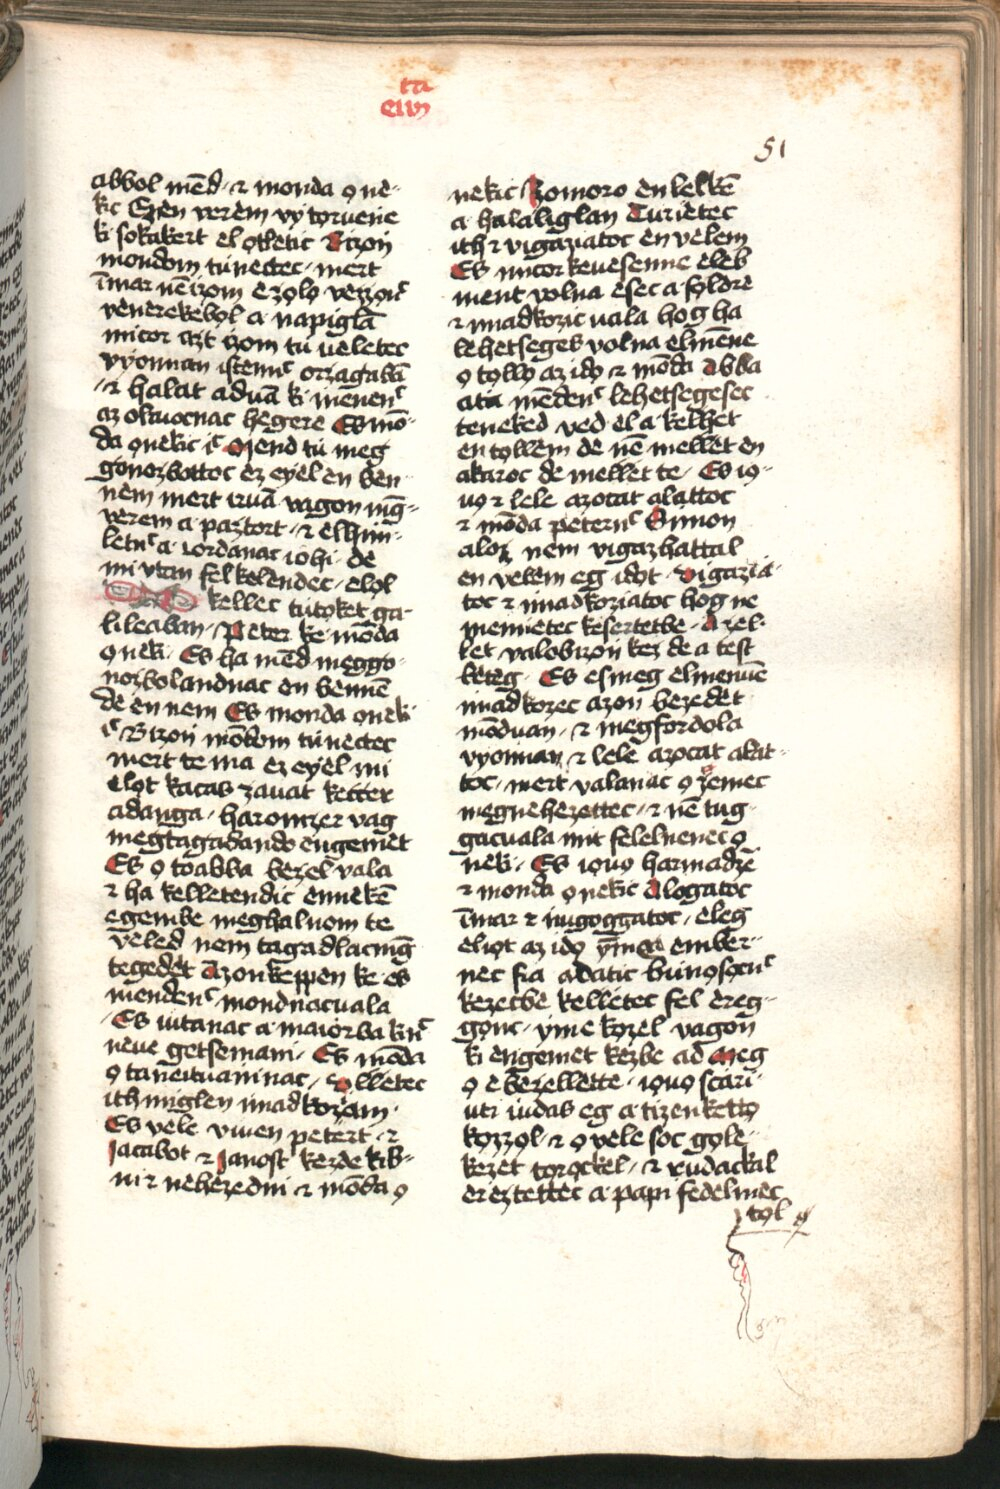 ta
eliṁ
51
abbol mēd · ⁊ monda o̗ne-
kic Ezen vèrèm vy torvene
ki sokakert el o̗tletic Bizoń
mondom tu̇nectec · mert
īmar nē izom ezo̗lo̗ vèzzo̗nc
venerekebo̗l a napiglā
micor azt izom tu̇ veletec
vyonnan istenńc orzagabā
⁊ halat aduā ki menenc
az olauocnac hègere Es mō-
da o̗nekic ic Mend tu̇ meg
gonozboltoc ez eyèl en ben-
nèm mert iruā vagon mḡ-
verem a paztort · ⁊ elhim-
letnc a · iordanac iohi · de
mi vtan felkèlendec · elo̗l
kellec tu̇toket ga-
lileaban · Peter ke mōda
o̗nek · Es ha mēd meggo-
nozbolandnac en bennē
de en nem Es monda o̗nek
ic Bizoń mōdom tu̇nectec
mert te ma ez eyèl mi
elo̗t kacas zauat kètzer
adanga · haromzer vag
megtagadando engemèt
Es o̗ toabba bezèl vala
⁊ ha kelletendic ennekē
egèmbe meghalnom te
vèled nem tagadlac mḡ
tegedèt Azonkeppen ke es
mendenc mondnacuala
Es iutanac a maiorba kinc
neue getsemani · Es mōda
o̗ taneituaninac · Vlletec
ith miglen imadkozam ·
Es vèle viuen petèrt · ⁊
Iacabot ⁊ Ianost kezde kib-
ni ⁊ nehezedni ⁊ mōda o̗
nekic Zomoro en lelkē
a halaliglan Turietec
ith ⁊ vigaziatoc en velem
Es micor keuesenne eleb
ment volna esec a fo̗ldre
⁊ imadkozic uala hog ha
lehetseges volna elmènne
o̗ to̗llo̗ az ido̗ ⁊ mōda Abba
atia mendenc lehetsegesec
teneked ved el a kelhet
en to̗llem de nē mellet en
akaroc de mellet te · Es io̗-
uo̗ ⁊ lele azocat alattoc
⁊ mōda peternc Simon
aloz nem vigazhattal
en velem eg ido̗t · Vigazia-
toc ⁊ imadkoziatoc hog ne
menietec kesertetbe · A zel-
let valobizoń kez de a test
beteg · Es esmeg elmenuē
imadkozec azon bezedèt
mōduan · ⁊ megfordola
vyonnan ⁊ lele azocat alat-
toc · mert valanac o̗ zèmec
megnehezettec · ⁊ nē tug-
gacuala mit felelnenec o̗
nek · Es io̗uo̗ harmadzè
⁊ monda o̗nekic Alogatoc
īmar ⁊ nugoggatoc · eleg
elio̗t az ido̗ ẏme a ember-
nec fia adatic bu̇noso̗cnc
kezecbe kelletec fel ereg-
gonc · yme ko̗zel · vagon
ki engemet kezbe ad Meg
o̗ e bezellette · io̗uo̗ scari-
uti iudas eg a tizenketto̗
ko̗zzo̗l ⁊ o̗ vele soc go̗le-
kezet to̗ro̗ckel · ⁊ rudackal
ereztettec a papi fedelmec
to̗l